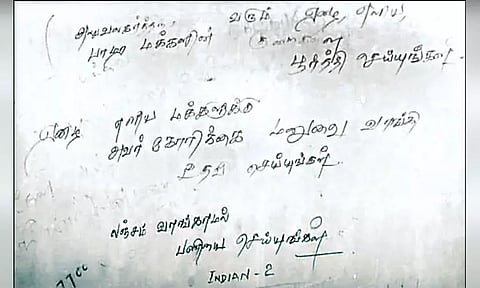 அலுவலகத்திற்கு வரும் ஏழை, எளிய,
பாமர மக்களின் குறைகளை
பூர்த்தி செய்யுங்கள்
ஏழை எளிய மக்களுக்கு
அவர் கோரிக்கை மனுவை வாங்கி
உதவி செய்யுங்கள்..
லஞ்சம் வாங்காமல்
பணியை செய்யுங்கள்
INDIAN - 2